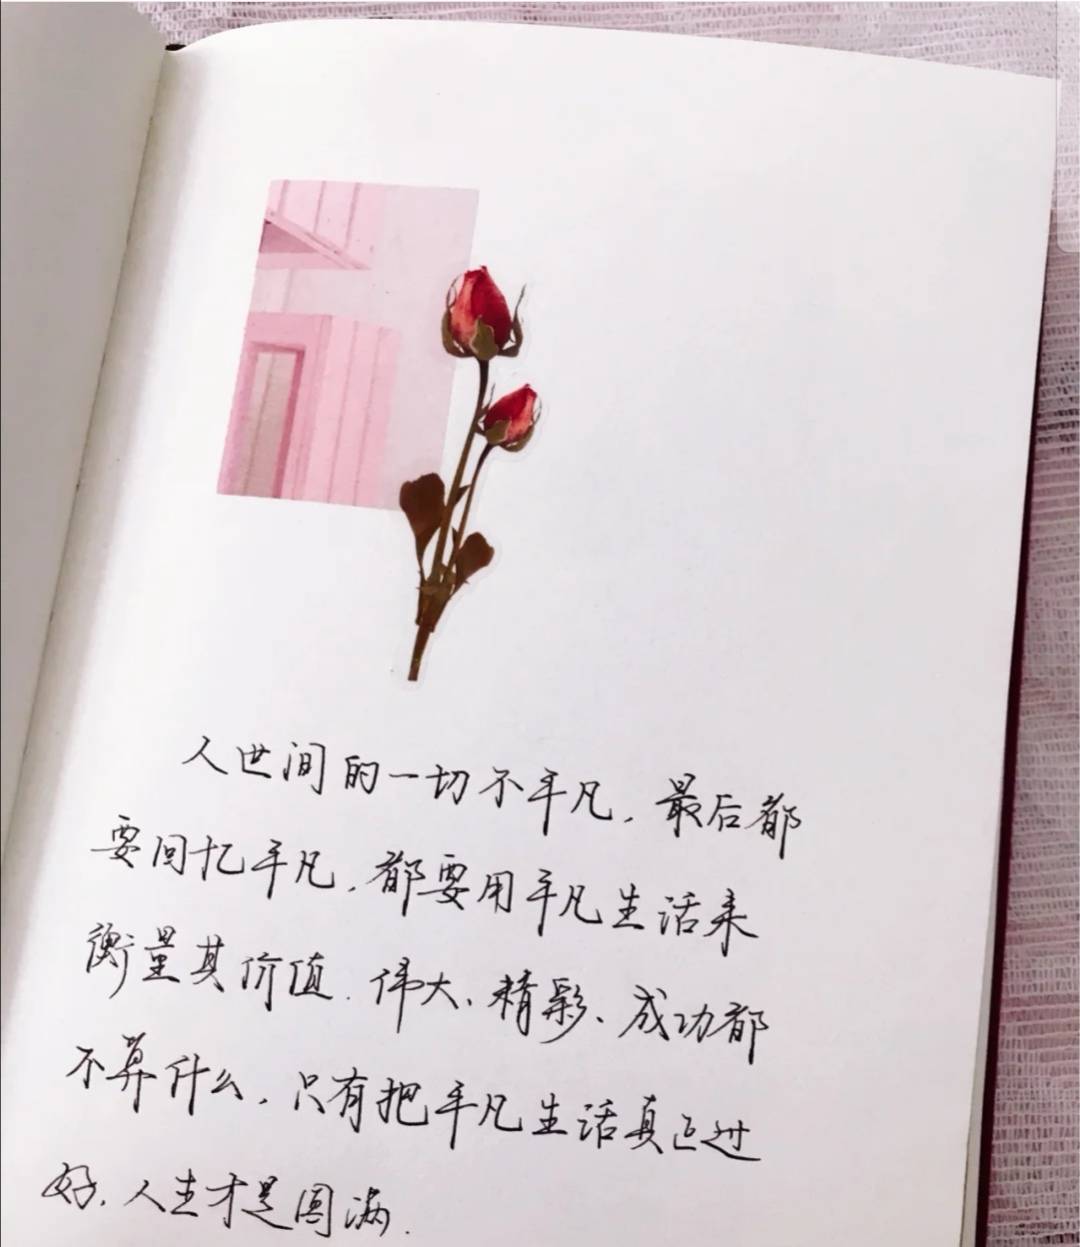 人世间的一切不平凡，最后都
要回忆平凡，都要用平凡生活来
衡量其价值．伟大、精彩、成功都
不算什么，只有把平凡生活真正过
好，人生才是圆满．